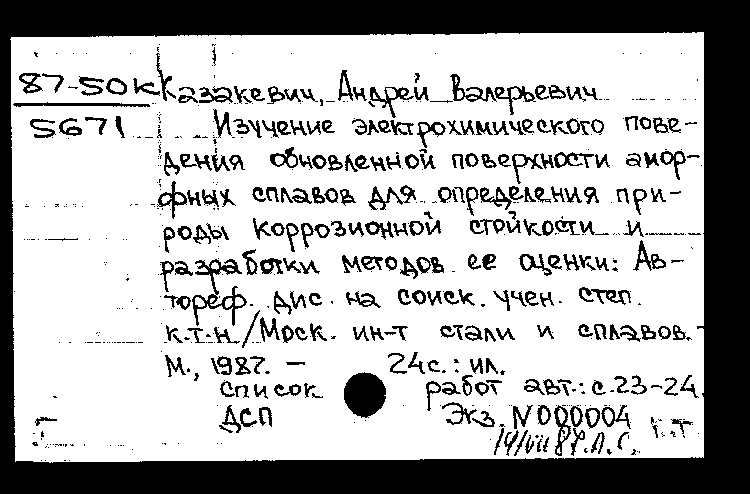 87-50к Казакевич, Андрей Валерьевич
5671 Изучение электрохимического пове-
дения обновленной поверхности амор-
фных сплавов для определения при-
роды коррозионной стойкости и
разработки методов ее оценки: Ав-
тореф. дис. на соиск. учен. степ.
к.т.н./Моск. ин-т стали и сплавов. -
М., 1987. - 24с.: ил.
список работ авт.: с.23-24.
ДСП Экз. N000004
Г 14/VII 87. Л.С. к.т